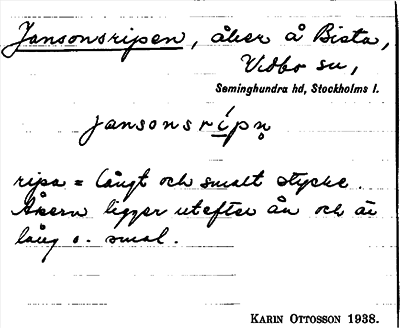 Jansonsripen, åker å Bista,
Vidbo sn,
Seminghundra hd, Stockholms l.
jansonsrípn̥
ripa = långt och smalt stycke.
Åkern ligger utefter ån och är
lång o. smal.
KARIN OTTOSSON 1938.